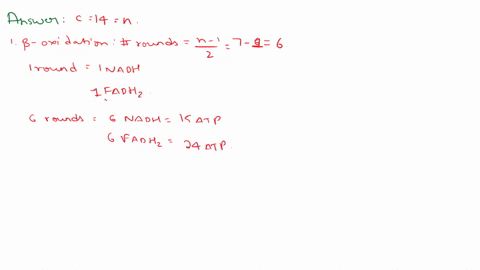 Answer: C = 14 = n.
1. β-oxidation: # rounds = n-1/2 = 7-1 = 6
1 round = 1 NADH
1 FADH2
6 rounds = 6 NADH = 15 ATP
6 FADH2 = 24 ATP